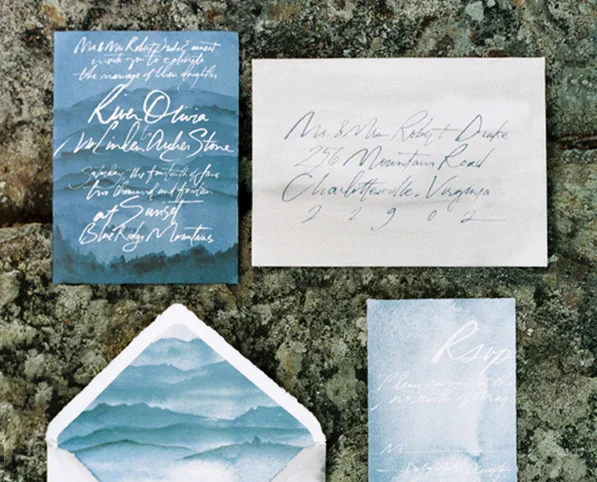 Mr. & Mrs. Robert Drake invite you to celebrate
the marriage of their daughter
River Olivia
to
Mr. Linden Archer Stone
Saturday, the fourteenth of June
two thousand and fourteen
at Sunset
Blue Ridge Mountains
Mr. & Mrs. Robert Drake
256 Mountain Road
Charlottesville, Virginia
2 2 9 0 2
Rsvp
Please
of May
M